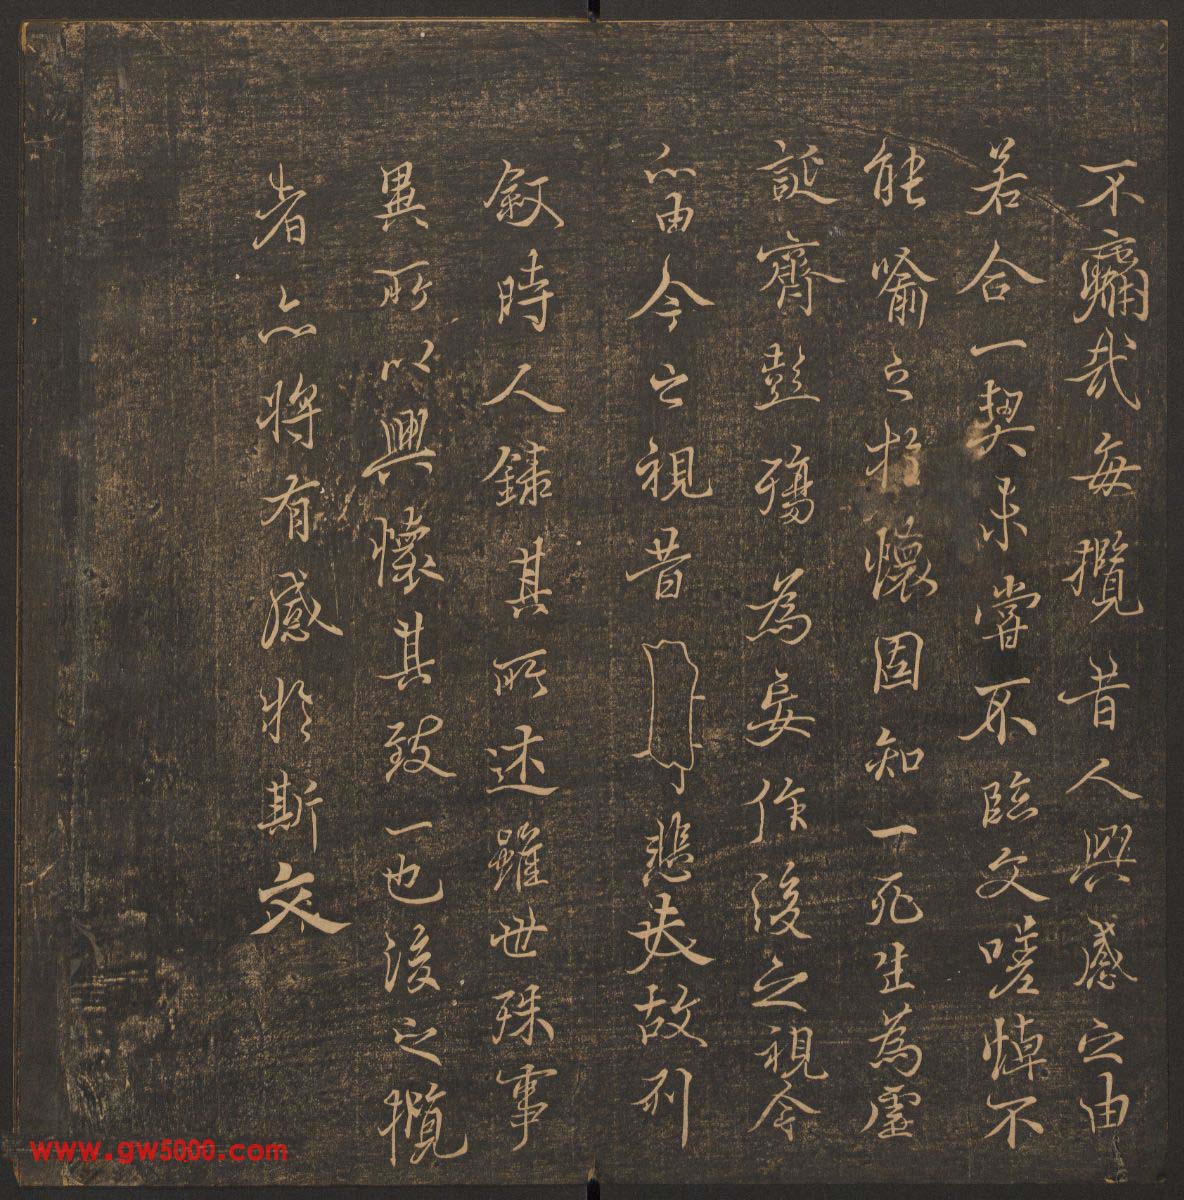 不痛哉每攬昔人興感之由
若合一契未嘗不臨文嗟悼不
能喻之於懷固知一死生為虛
誕齊彭殤為妄作後之視今
亦由今之視昔悲夫故列
敘時人錄其所述雖世殊事
異所以興懷其致一也後之攬
者亦將有感於斯文
www.gw5000.com